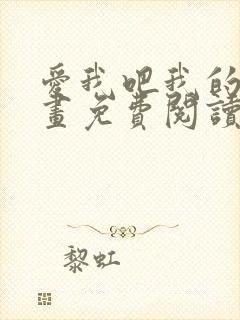 愛我吧我的
畫免費閱讀
黎虹